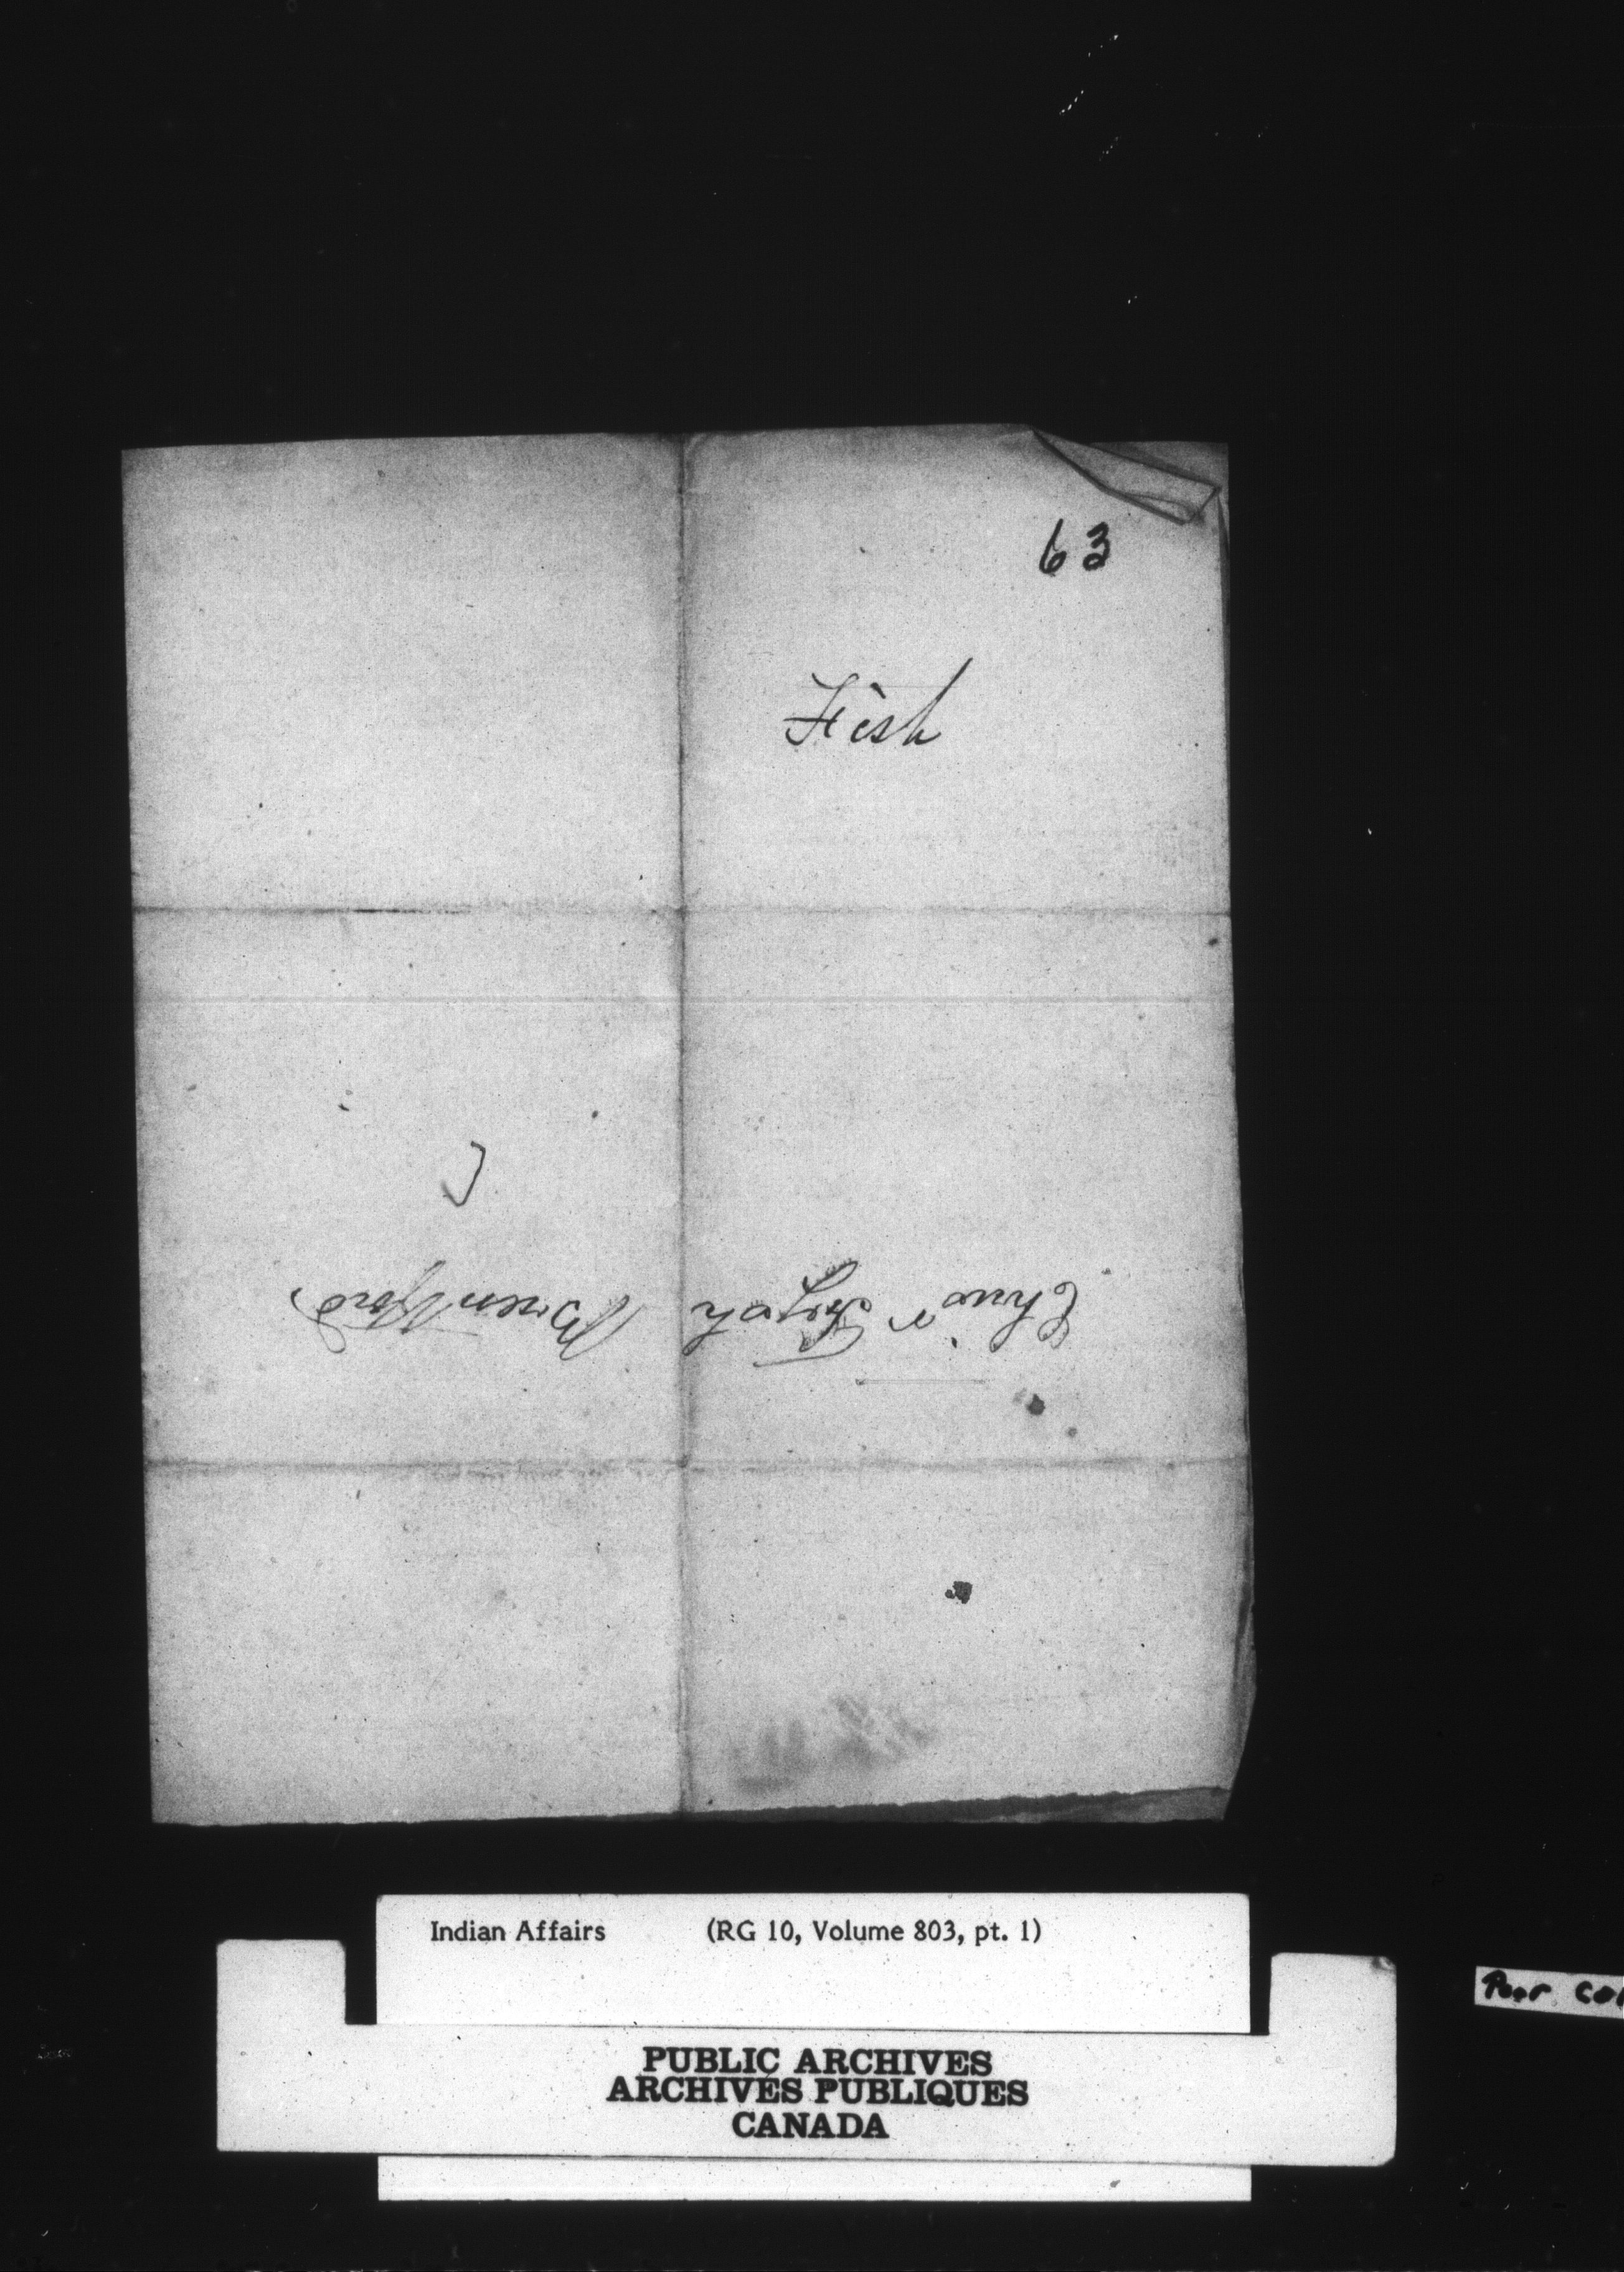 63
Fish
Brantford
Indian Affairs (RG 10, Volume 803, pt. 1)
PUBLIC ARCHIVES
ARCHIVES PUBLIQUES
CANADA
Poor